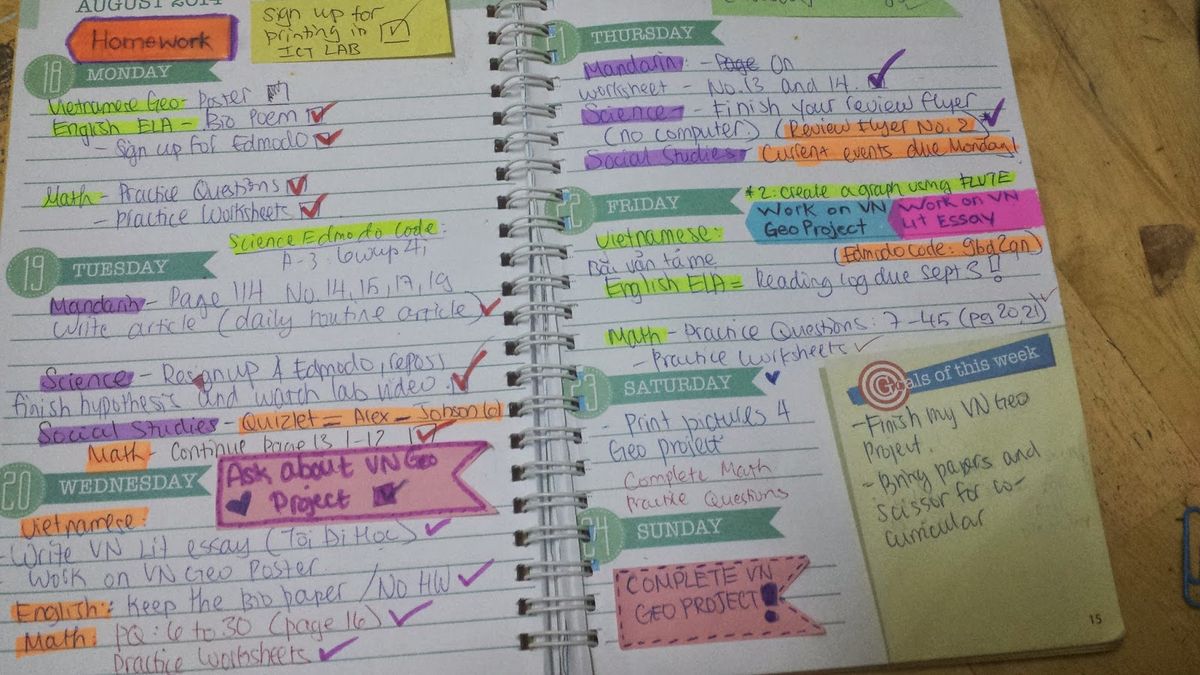 AUGUST 2014
Homework
Sign up for
printing in
ICT LAB
18 MONDAY
Vietnamese Geo- Poster
English ELA - Bio Poem
- Sign up for Edmodo
Math - Practice Questions
- Practice Worksheets
Science Edmodo Code:
19 TUESDAY
Mandarin - Page 114 No. 14, 15, 17, 19
Write article (daily routine article)
Science - Resignup 4 Edmodo, repost
finish hypothesis and watch lab video.
Social Studies - Quizlet = Alex - Jobson(c)
Math - Continue page 13 1-12
20 WEDNESDAY
Ask about VN Geo
Project
Vietnamese:
- Write VN Lit essay (Tôi Đi Học)
- Work on VN Geo Poster
English: Keep the Bio paper / No HW
Math: PQ: 6 to 30 (page 16)
Practice Worksheets
THURSDAY
Mandarin: - Page On
worksheet - No. 13 and 14.
Science - Finish your review flyer
(no computer.) (Review Flyer No. 2)
Social Studies - Current events due Monday!
*2: create a graph using FLUTE
2 FRIDAY
Work on VN
Geo Project
Work on VN
Lit Essay
Vietnamese:
Bài văn tả mẹ
(Edmodo Code: gbq2qn)
English ELA = Reading log due Sept 3!
Math - Practice Questions: 7-45 (pg 20,21)
- Practice Worksheets
3 SATURDAY
- Print pictures 4
Geo project
Complete Math
Practice Questions
24 SUNDAY
COMPLETE VN
GEO PROJECT!
Goals of this week
- Finish my VN Geo
Project.
- Bring papers and
scissor for co-
curricular
15